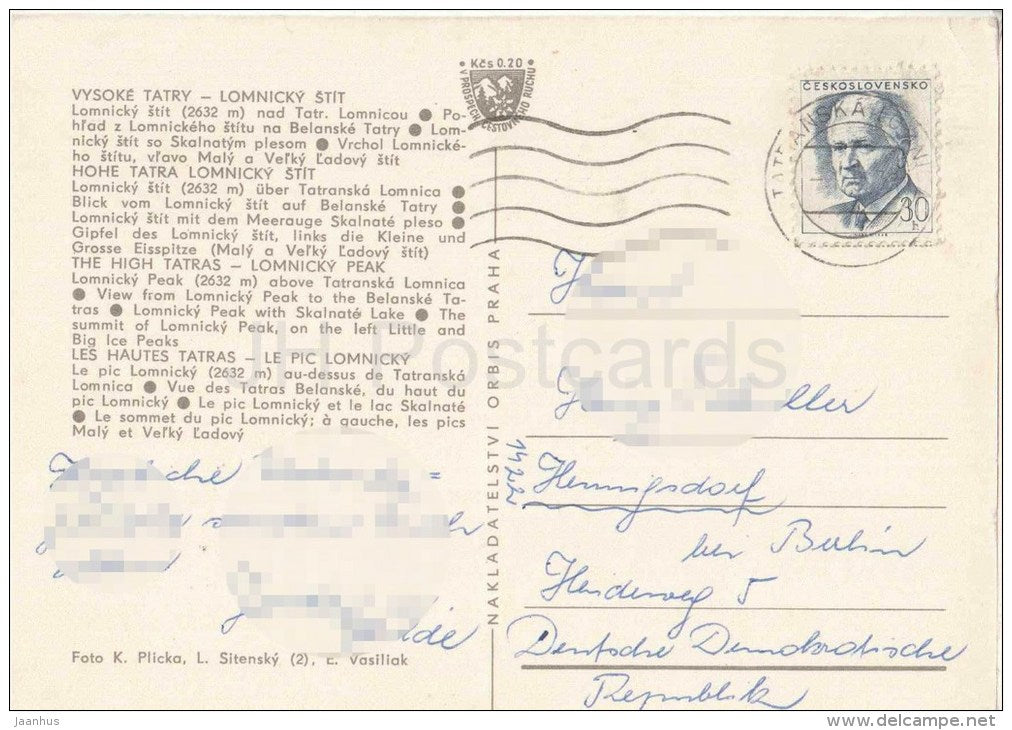 Kčs 0.20
V PROSPĚCH CESTOVNÉHO RUCHU
ČESKOSLOVENSKO
30
VYSOKÉ TATRY – LOMNICKÝ ŠTÍT
Lomnický štít (2632 m) nad Tatr. Lomnicou ● Po-
hľad z Lomnického štítu na Belanské Tatry ● Lom-
nický štít so Skalnatým plesom ● Vrchol Lomnické-
ho štítu, vľavo Malý a Veľký Ľadový štít
HOHE TATRA LOMNICKÝ ŠTÍT
Lomnický štít (2632 m) über Tatranská Lomnica ●
Blick vom Lomnický štít auf Belanské Tatry ●
Lomnický štít mit dem Meerauge Skalnaté pleso ●
Gipfel des Lomnický štít, links die Kleine und
Grosse Eisspitze (Malý a Veľký Ľadový štít)
THE HIGH TATRAS – LOMNICKÝ PEAK
Lomnický Peak (2632 m) above Tatranská Lomnica
● View from Lomnický Peak to the Belanské Ta-
tras ● Lomnický Peak with Skalnaté Lake ● The
summit of Lomnický Peak, on the left Little and
Big Ice Peaks
LES HAUTES TATRAS – LE PIC LOMNICKÝ
Le pic Lomnický (2632 m) au-dessus de Tatranská
Lomnica ● Vue des Tatras Belanské, du haut du
pic Lomnický ● Le pic Lomnický et le lac Skalnaté
● Le sommet du pic Lomnický; à gauche, les pics
Malý et Veľký Ľadový
Foto K. Plicka, L. Sitenský (2), E. Vasiliak
NAKLADATELSTVÍ ORBIS PRAHA
1422 Hennigsdorf
bei Berlin
Heideweg 5
Deutsche Demokratische
Republik
JH Postcards
jaanhus
delcampe.net